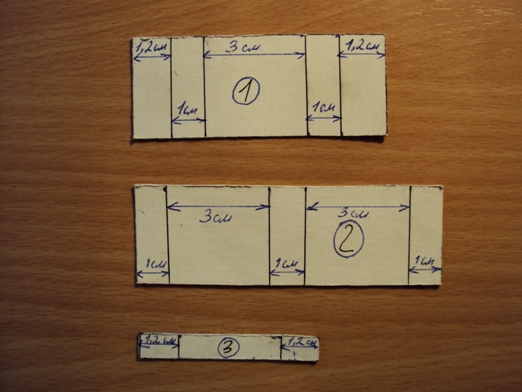 1,2см 3 см 1,2см
1
1см 1см
3см 3см
2
1см 1см 1см
1,2см 3 1,2см